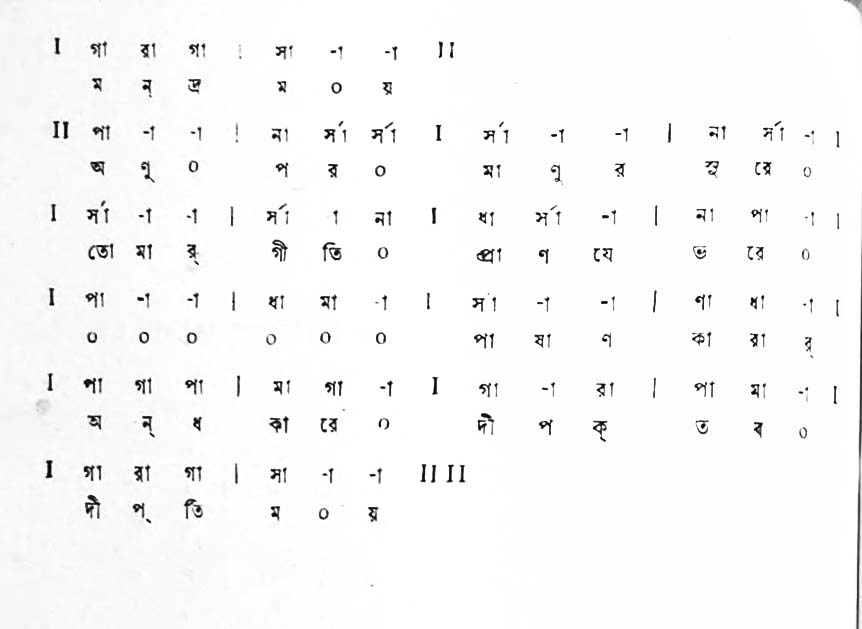 I গা রা গা | সা -া -া II
ম ন্ দ্র ম ০ য়
II পা -া -া | না র্সা র্সা I র্সা -া -া | না র্সা -া I
অ ণূ ০ প র ০ মা ণূ র সু রে ০
I র্সা -া -া | র্সা া না I ধা র্সা -া | না পা -া |
তো মা র্ গী তি ০ প্রা ণ যে ভ রে ০
I পা -া -া | ধা মা -া I র্সা -া -া | ণা ধা -া I
০ ০ ০ ০ ০ ০ পা ষা ণ কা রা র্
I পা গা পা | মা গা -া I গা -া রা | পা মা -া I
অ ন্ ধ কা রে ০ দী প ক্ ত ব ০
I গা রা গা | সা -া -া II II
দী প্ তি ম ০ য়